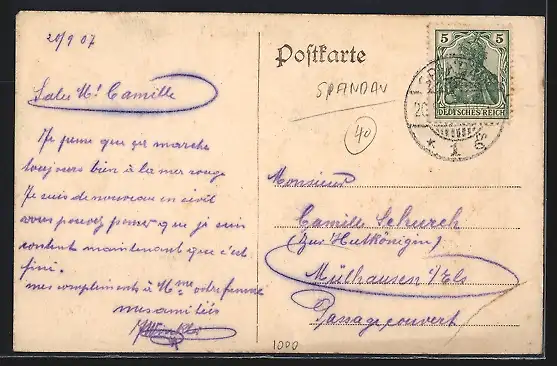 20/9 07
Postkarte
SPANDAU
5 5
DEUTSCHES REICH
* 1
40
Salu Mr Camille
Je pense que ça marche
toujours bien à la mer rouge
Je suis de nouveau en civil
vous pouvez penser que je suis
content maintenant que c'est
fini.
mes compliments à Mme votre femme
mes amitiés
Monsieur
Camille Schurch
(zur Hutkönigin)
Mülhausen i/Els
Passage couvert
1000